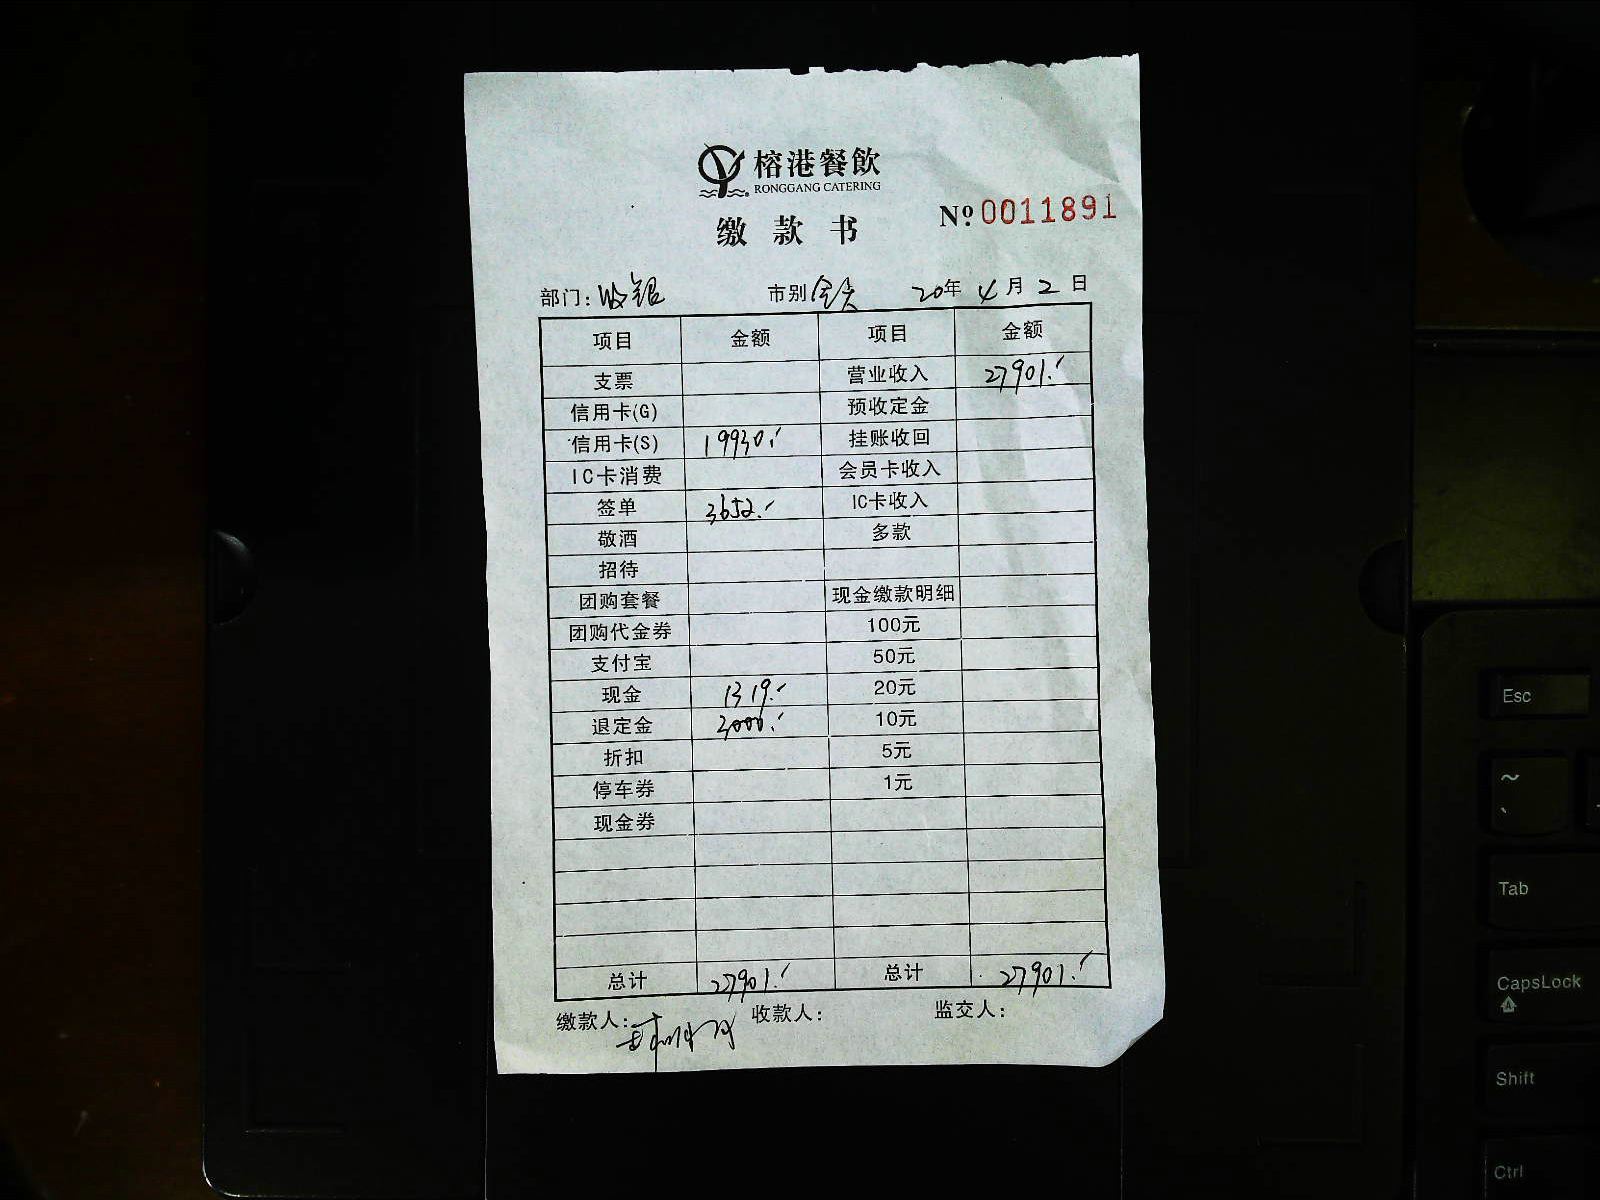 榕港餐飲
RONGGANG CATERING
缴款书
№ 0011891
部门: 收银 市别 全天 20年 4月 2日
项目 金额 项目 金额
支票 营业收入 27901.-
信用卡(G) 预收定金
信用卡(S) 19930.- 挂账收回
IC卡消费 会员卡收入
签单 3652.- IC卡收入
敬酒 多款
招待
团购套餐 现金缴款明细
团购代金券 100元
支付宝 50元
现金 1319.- 20元
退定金 3000.- 10元
折扣 5元
停车券 1元
现金券
总计 27901.- 总计 27901.-
缴款人: 收款人: 监交人:
Esc
~
、
Tab
CapsLock
Shift
Ctrl